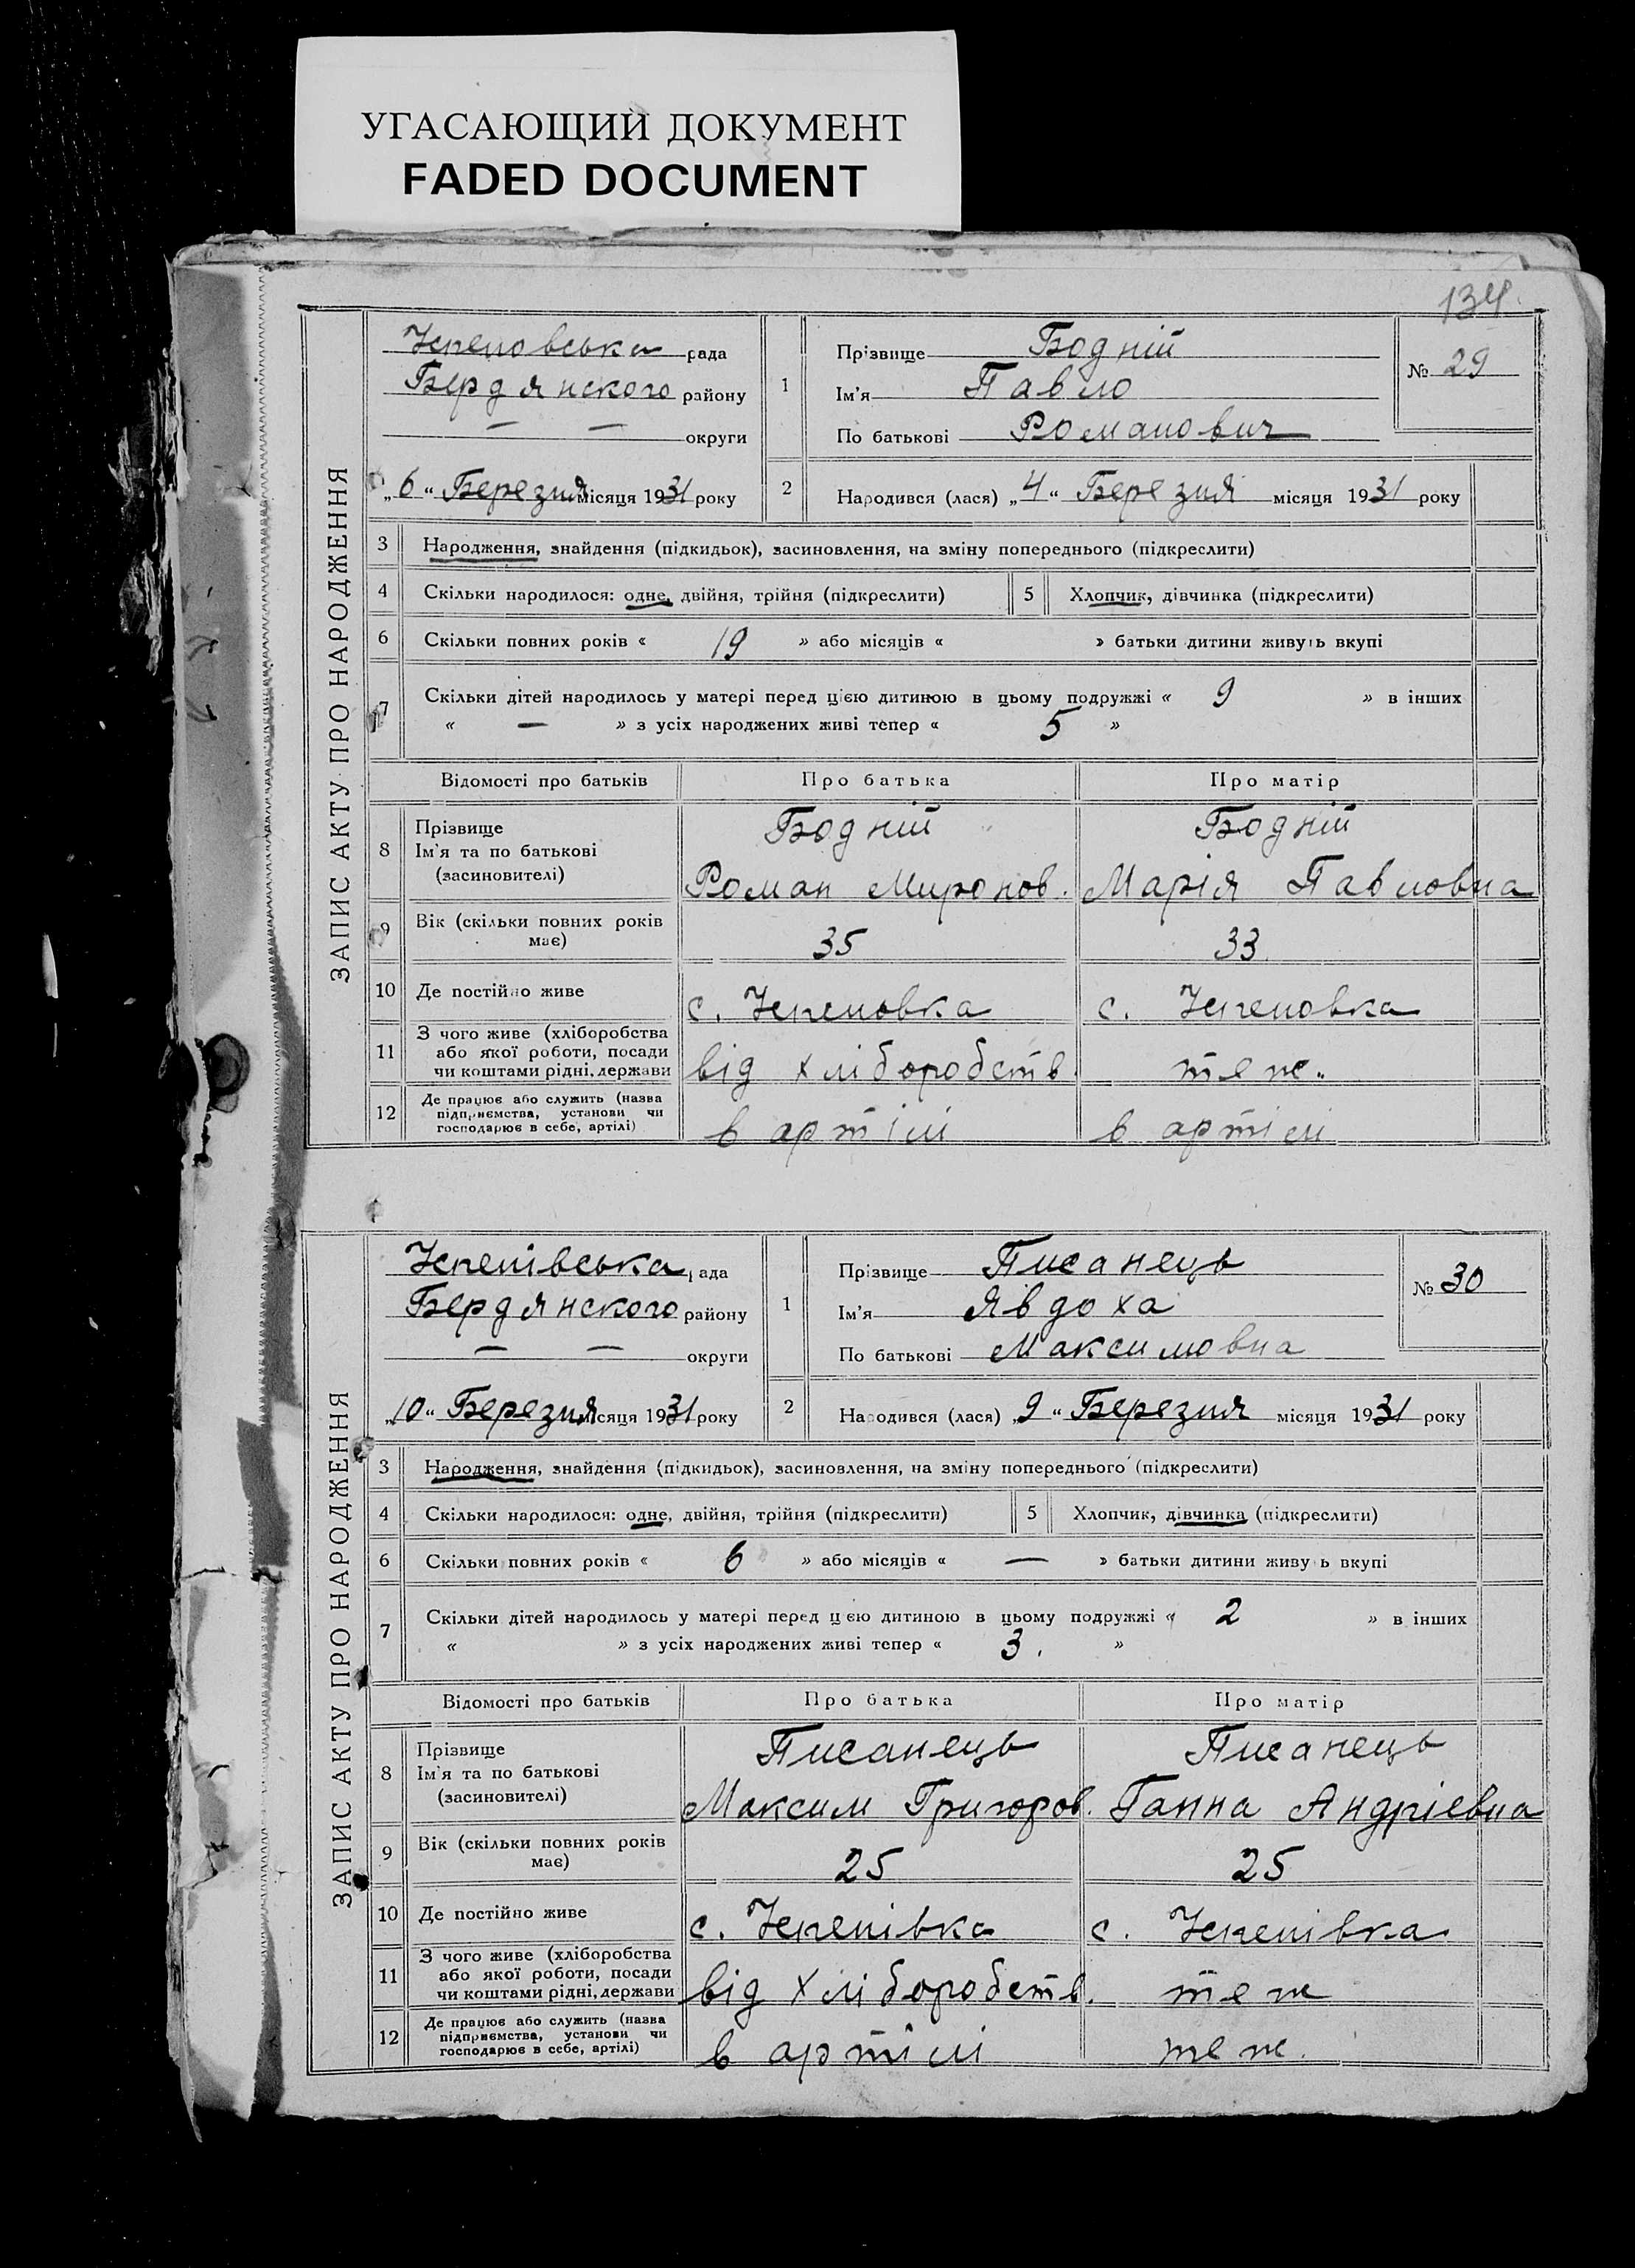 УГАСАЮЩИЙ ДОКУМЕНТ
FADED DOCUMENT
134.
ЗАПИС АКТУ ПРО НАРОДЖЕННЯ
Успеновська рада
Бердянского району
— — округи
„6“ Березня місяця 1931 року
1
Прізвище Бодній
Ім'я Павло
По батькові Романович
№ 29
2
Народився (лася) „4“ Березня місяця 1931 року
3 Народження, знайдення (підкидьок), засиновлення, на зміну попереднього (підкреслити)
4 Скільки народилося: одне, двійня, трійня (підкреслити) 5 Хлопчик, дівчинка (підкреслити)
6 Скільки повних років « 19 » або місяців « » батьки дитини живуть вкупі
7 Скільки дітей народилось у матері перед цією дитиною в цьому подружжі « 9 » в інших
« — » з усіх народжених живі тепер « 5 »
Відомості про батьків Про батька Про матір
8 Прізвище Бодній Бодній
Ім'я та по батькові
(засиновителі) Роман Миронов. Марія Павловна
9 Вік (скільки повних років
має) 35 33
10 Де постійно живе с. Успеновка с. Успеновка
11 З чого живе (хліборобства
або якої роботи, посади
чи коштами рідні, держави від хліборобств. теж.
12 Де працює або служить (назва
підприємства, установи чи
господарює в себе, артілі) в артілі в артілі
ЗАПИС АКТУ ПРО НАРОДЖЕННЯ
Успенівська рада
Бердянского району
— — округи
„10“ Березня місяця 1931 року
1
Прізвище Писанець
Ім'я Явдоха
По батькові Максимовна
№ 30
2
Народився (лася) „9“ Березня місяця 1931 року
3 Народження, знайдення (підкидьок), засиновлення, на зміну попереднього (підкреслити)
4 Скільки народилося: одне, двійня, трійня (підкреслити) 5 Хлопчик, дівчинка (підкреслити)
6 Скільки повних років « 6 » або місяців « — » батьки дитини живуть вкупі
7 Скільки дітей народилось у матері перед цією дитиною в цьому подружжі « 2 » в інших
« » з усіх народжених живі тепер « 3. »
Відомості про батьків Про батька Про матір
8 Прізвище Писанець Писанець
Ім'я та по батькові
(засиновителі) Максим Григоров. Ганна Андріевна
9 Вік (скільки повних років
має) 25 25
10 Де постійно живе с. Успенівка с. Успенівка
11 З чого живе (хліборобства
або якої роботи, посади
чи коштами рідні, держави від хліборобств. теж
12 Де працює або служить (назва
підприємства, установи чи
господарює в себе, артілі) в артілі теж.